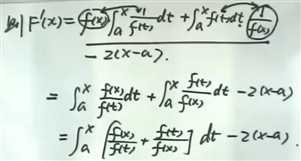 F'(x) = f(x)∫ₐˣ 1/f(t) dt + ∫ₐˣ f(t)dt · 1/f(x)
- 2(x-a).
= ∫ₐˣ f(x)/f(t) dt + ∫ₐˣ f(t)/f(x) dt - 2(x-a)
= ∫ₐˣ [f(x)/f(t) + f(t)/f(x)] dt - 2(x-a).